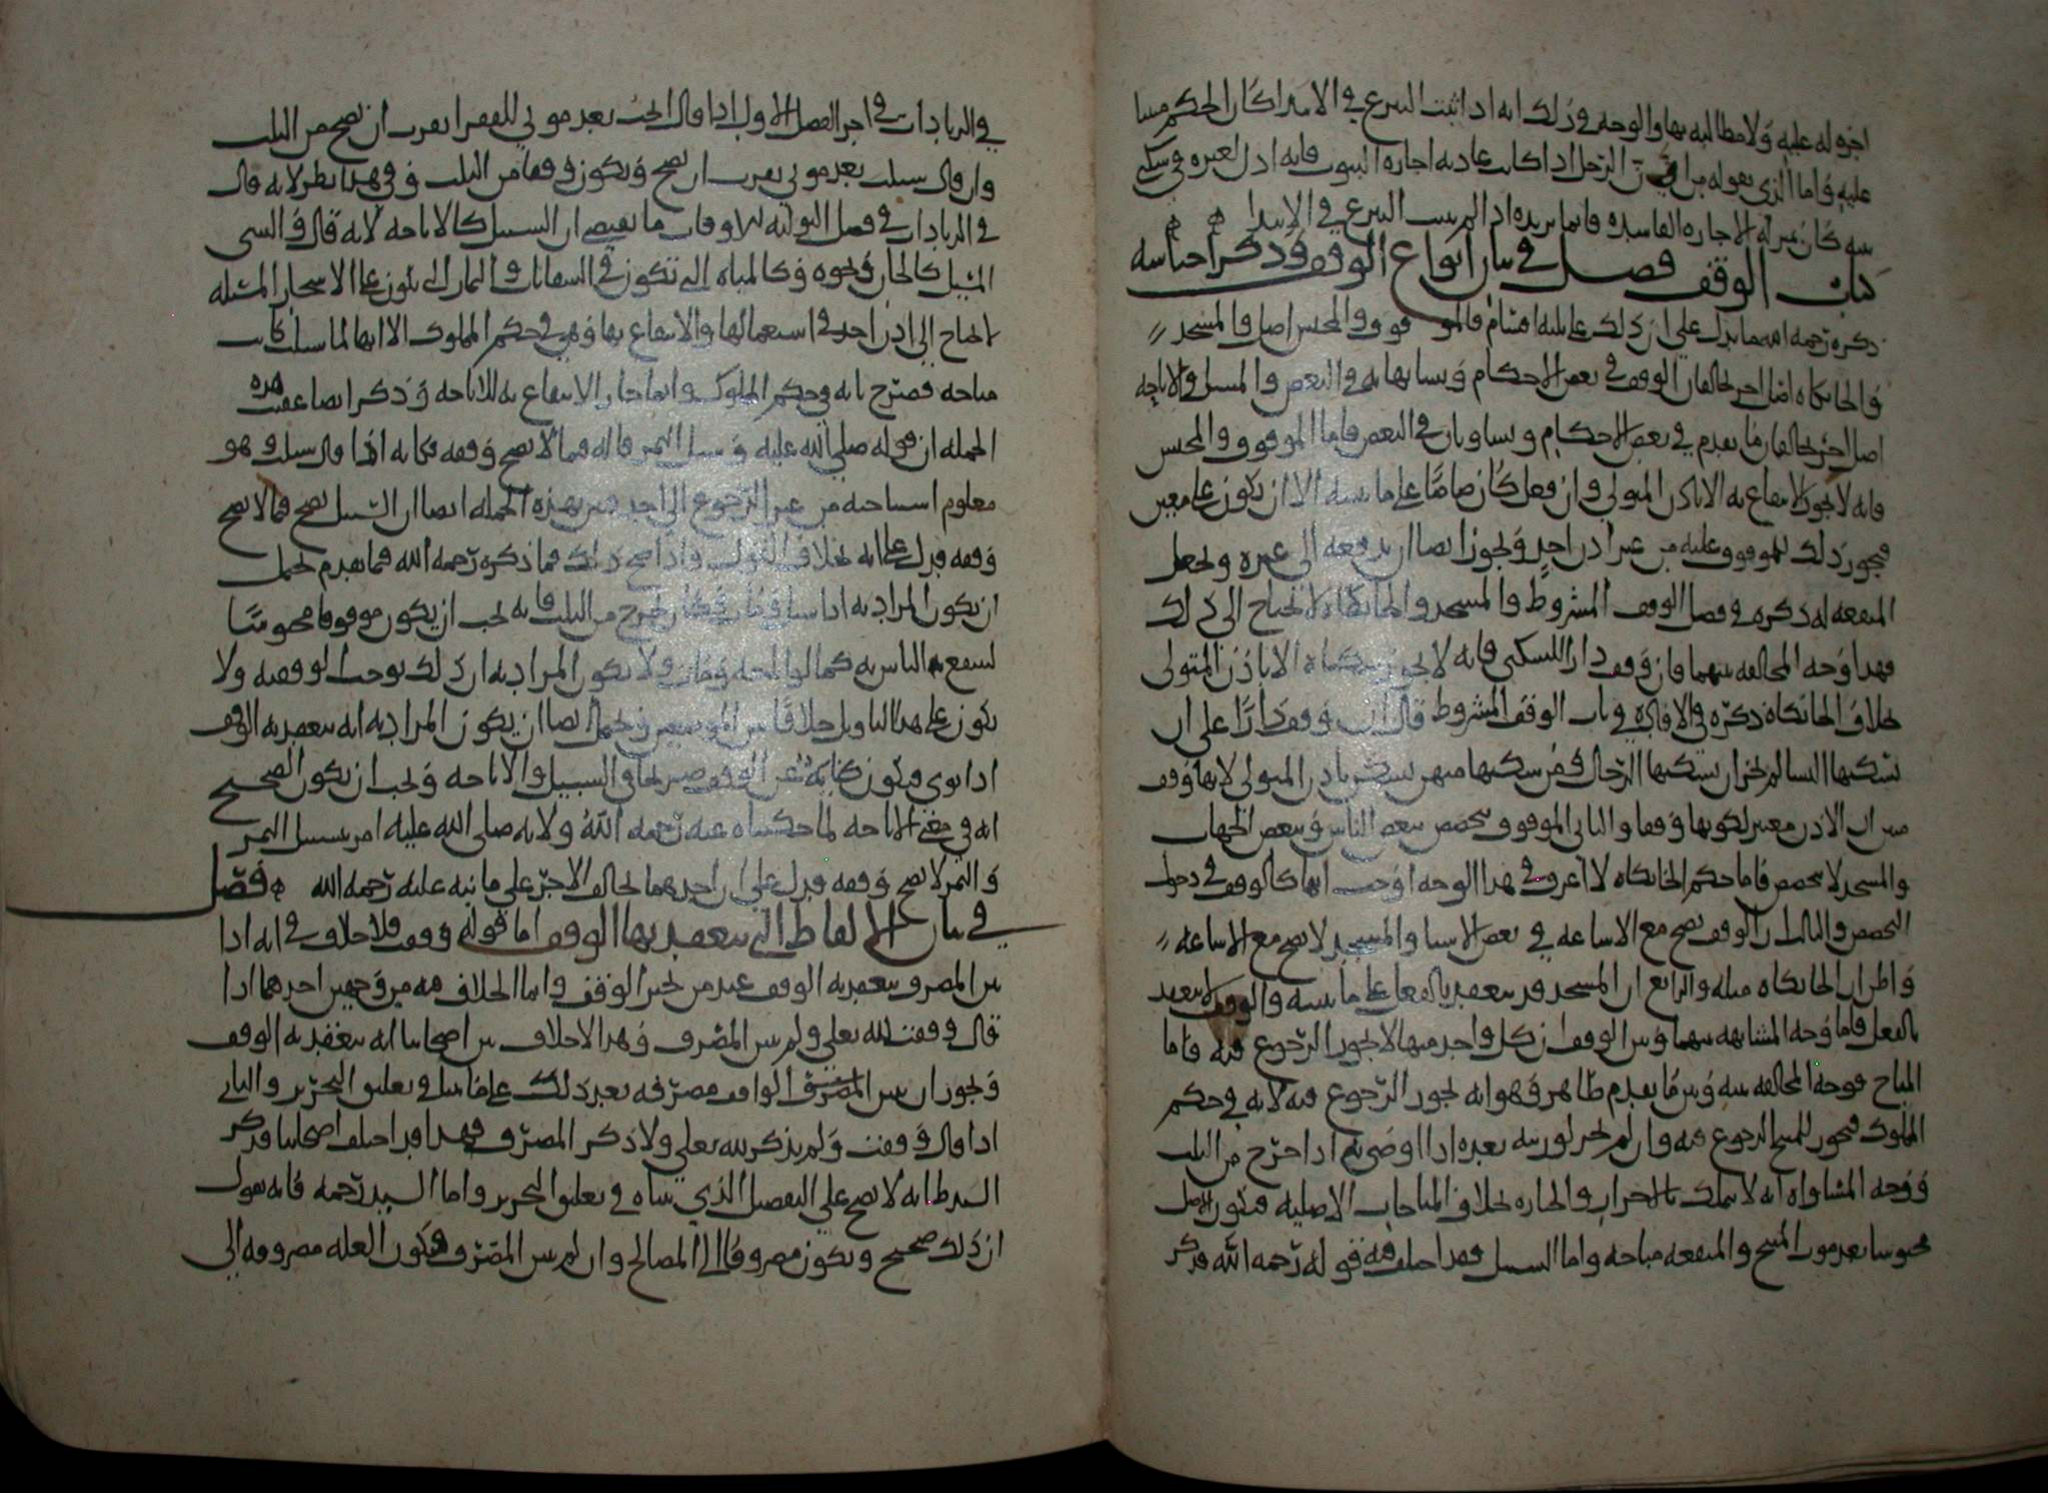 اجره له عليه ولا مطالبة بها والوجه في ذلك انه اذا ثبت التبرع في الابتدا كان الحكم مبنيا
عليه فاما الذي نقوله من ان الرجل اذا كانت عادته اجارة البيوت فانه اذا دل لغيره في سكنى
بيته كان بمنزلة الاجارة الفاسدة فانما نريده اذا لم يثبت التبرع في الابتدا
كتاب الوقف فصل في بيان انواع الوقف وذكر اجناسه
ذكره رحمه الله مما يدل على ان ذلك على ثلاثة اقسام فالموقوف والمحبس اصل والمسجد
والخانكاه اصل اخر يخالفان الوقف في بعض الاحكام ويشابهانه في البعض والمسبل والاباحة
اصل اخر يخالفان ما تقدم في بعض الاحكام ويساويان في البعض فاما الموقوف والمحبس
فانه لا يجوز الانتفاع به الا باذن المتولي وان فعل كان ضامنا على ما نبينه الا ان يكون على معين
فيجوز ذلك للموقوف عليه من غير اذن احد ويجوز ايضا ان يدفعه الى غيره ويجعل
المنفعة له ذكره في فصل الوقف المشروط والمسجد والخانكاه لا يحتاج الى ذلك
فهذا وجه المخالفة بينهما فان وقف دارا للسكنى فانه لا يجوز سكناه الا باذن المتولي
بخلاف الخانكاه ذكره في الافادة في باب الوقف المشروط قال ان وقف دارا على ان
تسكنها النسا لم يجز ان تسكنها الرجال ومن سكنها منهن يسكن باذن المتولي لانها وقف
فبين ان الاذن معتبر لكونها وقفا والثاني الموقوف يتخصص ببعض الناس وببعض الجهات
والمسجد لا يتخصص فاما حكم الخانكاه لا اعرف في هذا الوجه اوجب انها كالوقف في دخول
التخصص والثالث ان الوقف يصح مع الاشاعة في بعض الاشيا والمسجد لا يصح مع الاشاعة
واظن ان الخانكاه مثله والرابع ان المسجد قد ينعقد بالفعل على ما نبينه والوقف لا ينعقد
بالفعل فاما وجه المشابهة بينهما وبين الوقف ان كل واحد منها لا يجوز الرجوع فيه فاما
المباح فوجه المخالفة بينه وبين ما تقدم ظاهر وهو انه يجوز الرجوع فيه لانه في حكم
المملوك فيجوز للمبيح الرجوع فيه وان لم يجز لورثته بعده اذا اوصى به اذا خرج من الثلث
ووجه المساواة انه لا يملك بالاحراز والحيازة بخلاف المباحات الاصلية فيكون الاصل
محبوسا بعد موت المبيح والمنفعة مباحة واما السبيل فقد اختلف فيه قوله رحمه الله فذكر
في الزيادات في اخر الفصل الاول اذا قال اخرجت بعد موتي للفقرا يقرب ان يصح من الثلث
وان قال سبلت بعد موتي يقرب ان يصح ويكون وقفا من الثلث وفي هذا نظر لانه قال
في الزيادات في فصل التولية للاوقاف ما يقتضي ان السبيل كالاباحة لانه قال والشي
المسبل كالخان ونحوه وكالمياه التي تكون في السقايات والثمار التي تكون على الاشجار المسبلة
لا يحتاج الى اذن احد في استعمالها والانتفاع بها وهي في حكم المملوك الا انها لما سبلت كانت
مباحة فصرح بانه في حكم المملوك وانما جاز الانتفاع به للاباحة وذكر ايضا عقيب هذه
الجملة ان قوله صلى الله عليه وسبل الثمر قاله فيما لا يصح وقفه فكانه اذا قال سبلت وهو
معلوم استباحته من غير الرجوع الى احد فبين بهذه الجملة ايضا ان التسبيل يصح فيما لا يصح
وقفه فدل على انه بخلاف الوقف واذا صح ذلك فما ذكره رحمه الله فيما تقدم يحتمل
ان يكون المراد به اذا سبل وقال وكان يخرج من الثلث فانه يجب ان يكون موقوفا محبوسا
لينتفع الناس به كما لو اباحه ومات ولا يكون المراد به ان ذلك يوجب الوقفية ولا
يكون على هذا التاويل خلافا بين الموضعين ويحتمل ايضا ان يكون المراد به انه ينعقد به الوقف
اذا نوى فيكون كناية عن الوقف وصريحا في السبيل والاباحة ويجب ان يكون الصحيح
انه في معنى الاباحة لما حكيناه عنه رحمه الله ولانه صلى الله عليه امر بتسبيل الثمر
والثمر لا يصح وقفه فدل على ان احدهما يخالف الاخر على ما نبه عليه رحمه الله فصل
في بيان الالفاظ التي ينعقد بها الوقف اما قوله وقفت فلا خلاف في انه اذا
بين المصرف ينعقد به الوقف عند من يجيز الوقف وانما الخلاف فيه من وجهين احدهما اذا
قال وقفت لله تعالى ولم يبين المصرف وهذا لا خلاف بين اصحابنا انه ينعقد به الوقف
ويجوز ان يبين الواقف مصرفه بعد ذلك على ما بينا في تعليق التحرير والثاني
اذا قال وقفت ولم يذكر لله تعالى ولا ذكر المصرف فهذا قد اختلف اصحابنا فذكر
السيد ط انه لا يصح على التفصيل الذي بيناه في تعليق التحرير واما السيد رحمه فانه يقول
ان ذلك صحيح ويكون مصروفا الى المصالح وان لم يبين المصرف وتكون الغلة مصروفة الى